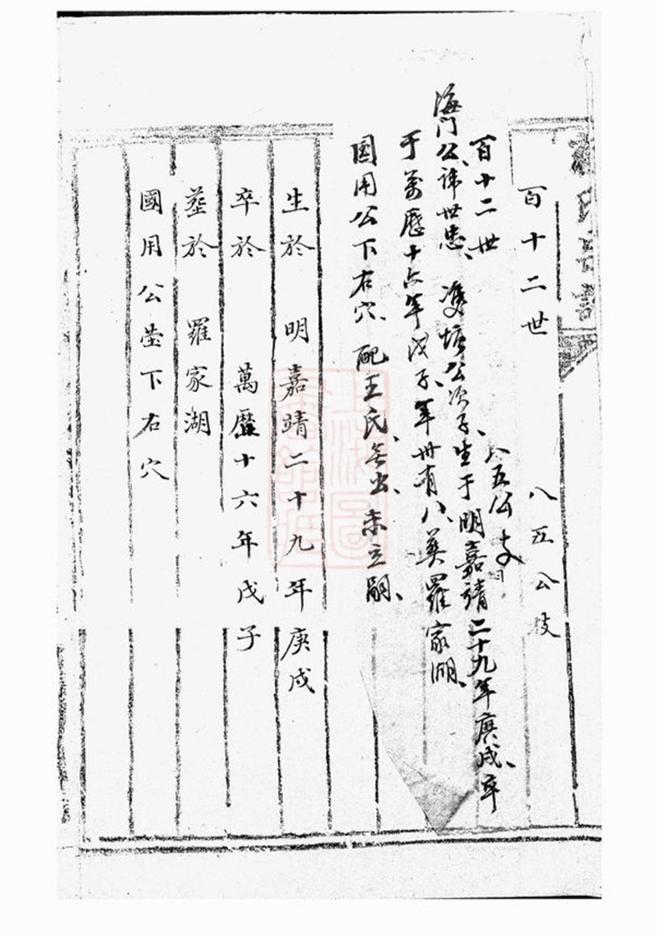 百十二世 八五公支
百十二世 八五公支
海門公諱世忠、雙塘公次子、生于明嘉靖二十九年庚戌、卒
于萬歷十六年戊子、年卅有八、葬羅家湖、
國用公下右穴、配王氏、無出、未立嗣、
生於 明嘉靖二十九年庚戌
卒於 萬歷十六年戊子
塟於 羅家湖
國用公塋下右穴